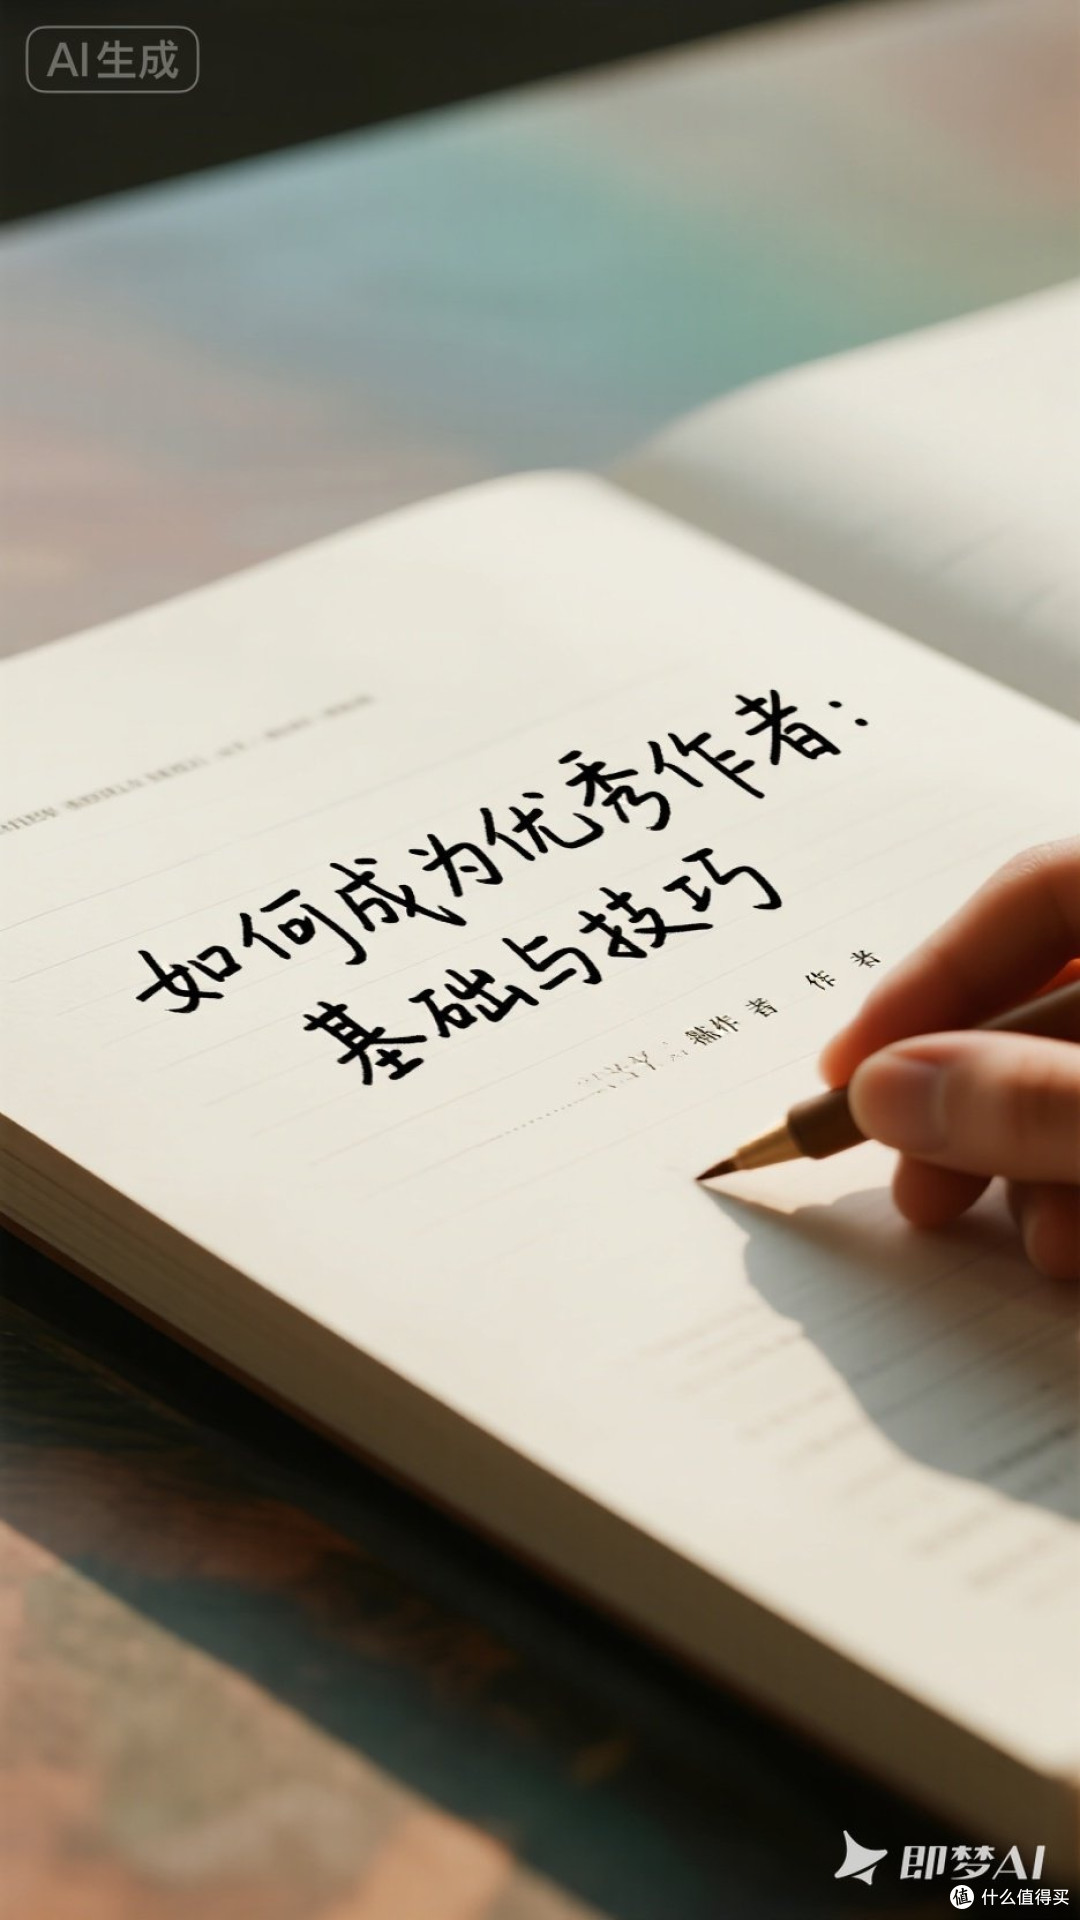 AI生成
如何成为优秀作者:
基础与技巧
作者 作者
即梦AI
值 什么值得买